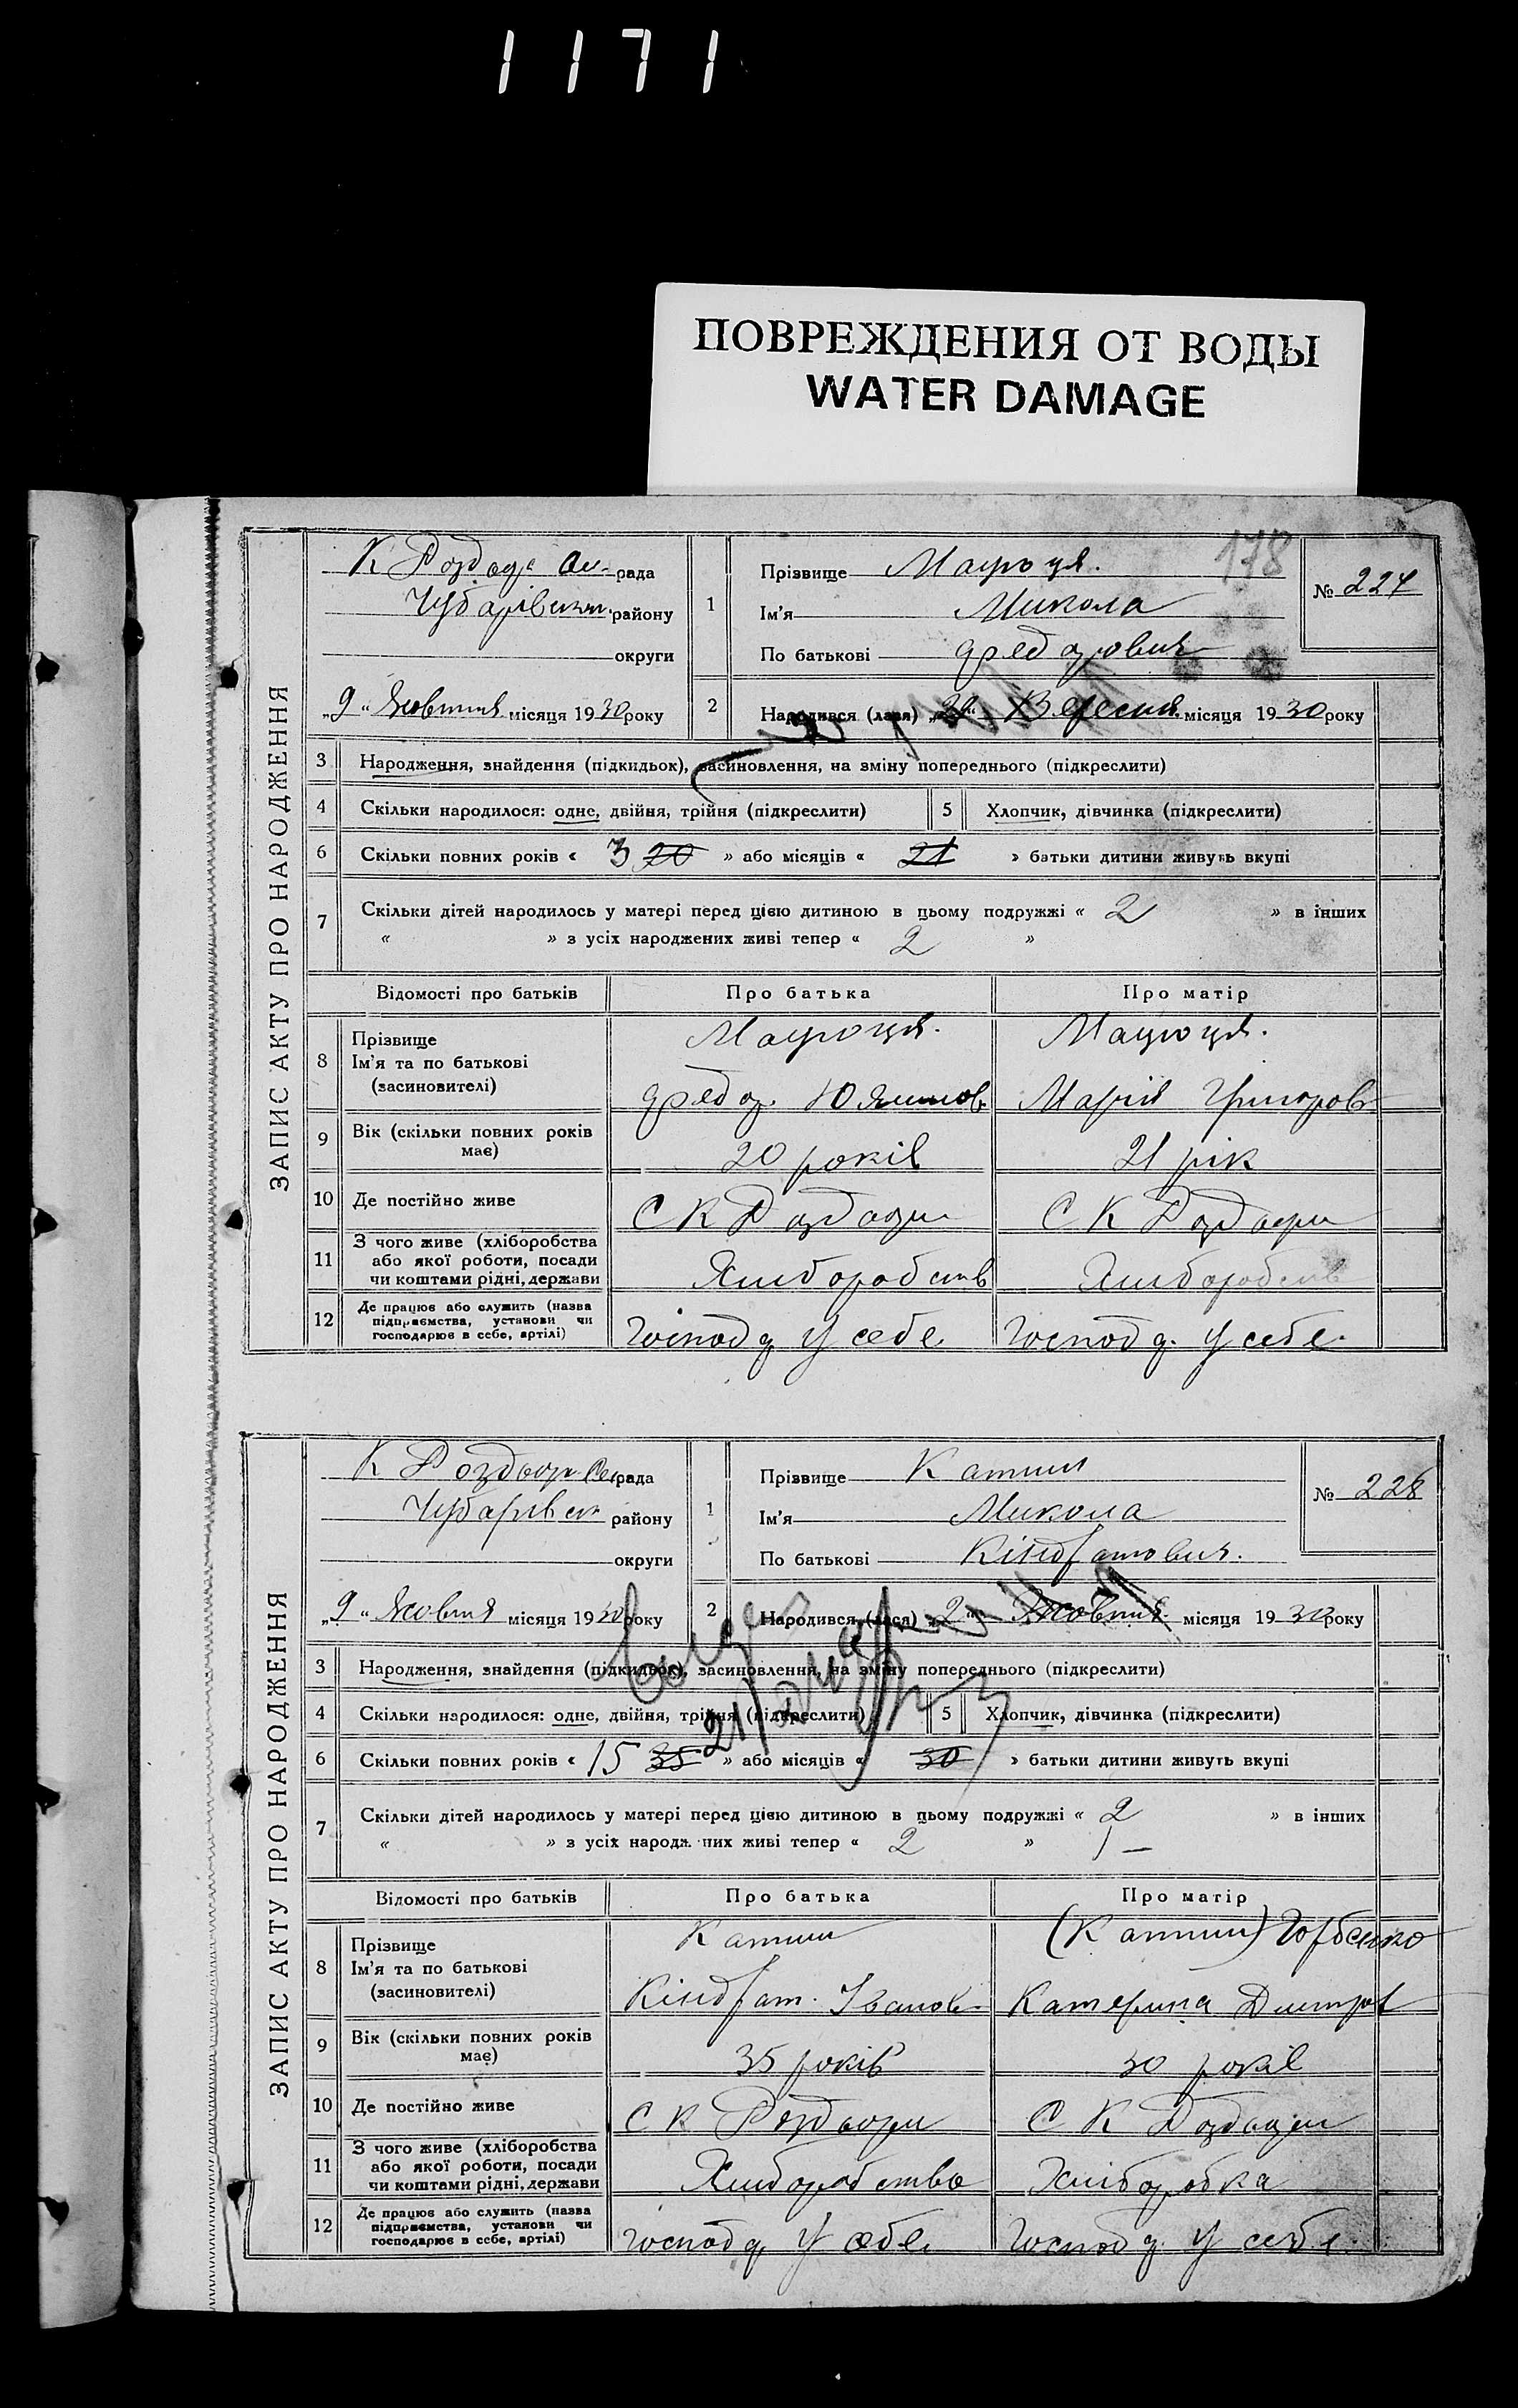 1171
ПОВРЕЖДЕНИЯ ОТ ВОДЫ
WATER DAMAGE
178
ЗАПИС АКТУ ПРО НАРОДЖЕННЯ
К рада
району
округи
„9“ Жовтня місяця 1930 року
1
Прізвище
Ім'я Микола
По батькові Федорович
№ 227
2
Народився (лася) Вересня місяця 1930 року
3 Народження, знайдення (підкидьок), засиновлення, на зміну попереднього (підкреслити)
4 Скільки народилося: одне, двійня, трійня (підкреслити) 5 Хлопчик, дівчинка (підкреслити)
6 Скільки повних років « 3 20 » або місяців « 21 » батьки дитини живуть вкупі
7 Скільки дітей народилось у матері перед цією дитиною в цьому подружжі « 2 » в інших
« » з усіх народжених живі тепер « 2 »
Відомості про батьків Про батька Про матір
8 Прізвище
Ім'я та по батькові
(засиновителі)
Федор. Марія Григоров
9 Вік (скільки повних років має) 20 років 21 рік
10 Де постійно живе С К С К
11 З чого живе (хліборобства або якої роботи, посади чи коштами рідні, держави Хліборобств Хліборобств
12 Де працює або служить (назва підприємства, установи чи господарює в себе, артілі) Господ у себе Господ. у себе.
ЗАПИС АКТУ ПРО НАРОДЖЕННЯ
К рада
Чубарівск району
округи
„9“ Жовтня місяця 1930 року
1
Прізвище
Ім'я Микола
По батькові Кіндратович.
№ 228
2
Народився (лася) „2“ Жовтня місяця 1930 року
3 Народження, знайдення (підкидьок), засиновлення, на зміну попереднього (підкреслити)
4 Скільки народилося: одне, двійня, трійня (підкреслити) 5 Хлопчик, дівчинка (підкреслити)
6 Скільки повних років « 15 35 » або місяців « 30 » батьки дитини живуть вкупі
7 Скільки дітей народилось у матері перед цією дитиною в цьому подружжі « 2 » в інших
« » з усіх народжених живі тепер « 2 » 1 —
Відомості про батьків Про батька Про матір
8 Прізвище
Ім'я та по батькові
(засиновителі)
Горбенко
Кіндрат. Іванов Катерина Дмитров
9 Вік (скільки повних років має) 35 років 30 років
10 Де постійно живе С К С К
11 З чого живе (хліборобства або якої роботи, посади чи коштами рідні, держави Хліборобство Хліборобка
12 Де працює або служить (назва підприємства, установи чи господарює в себе, артілі) Господ у себе. Господ у себе.